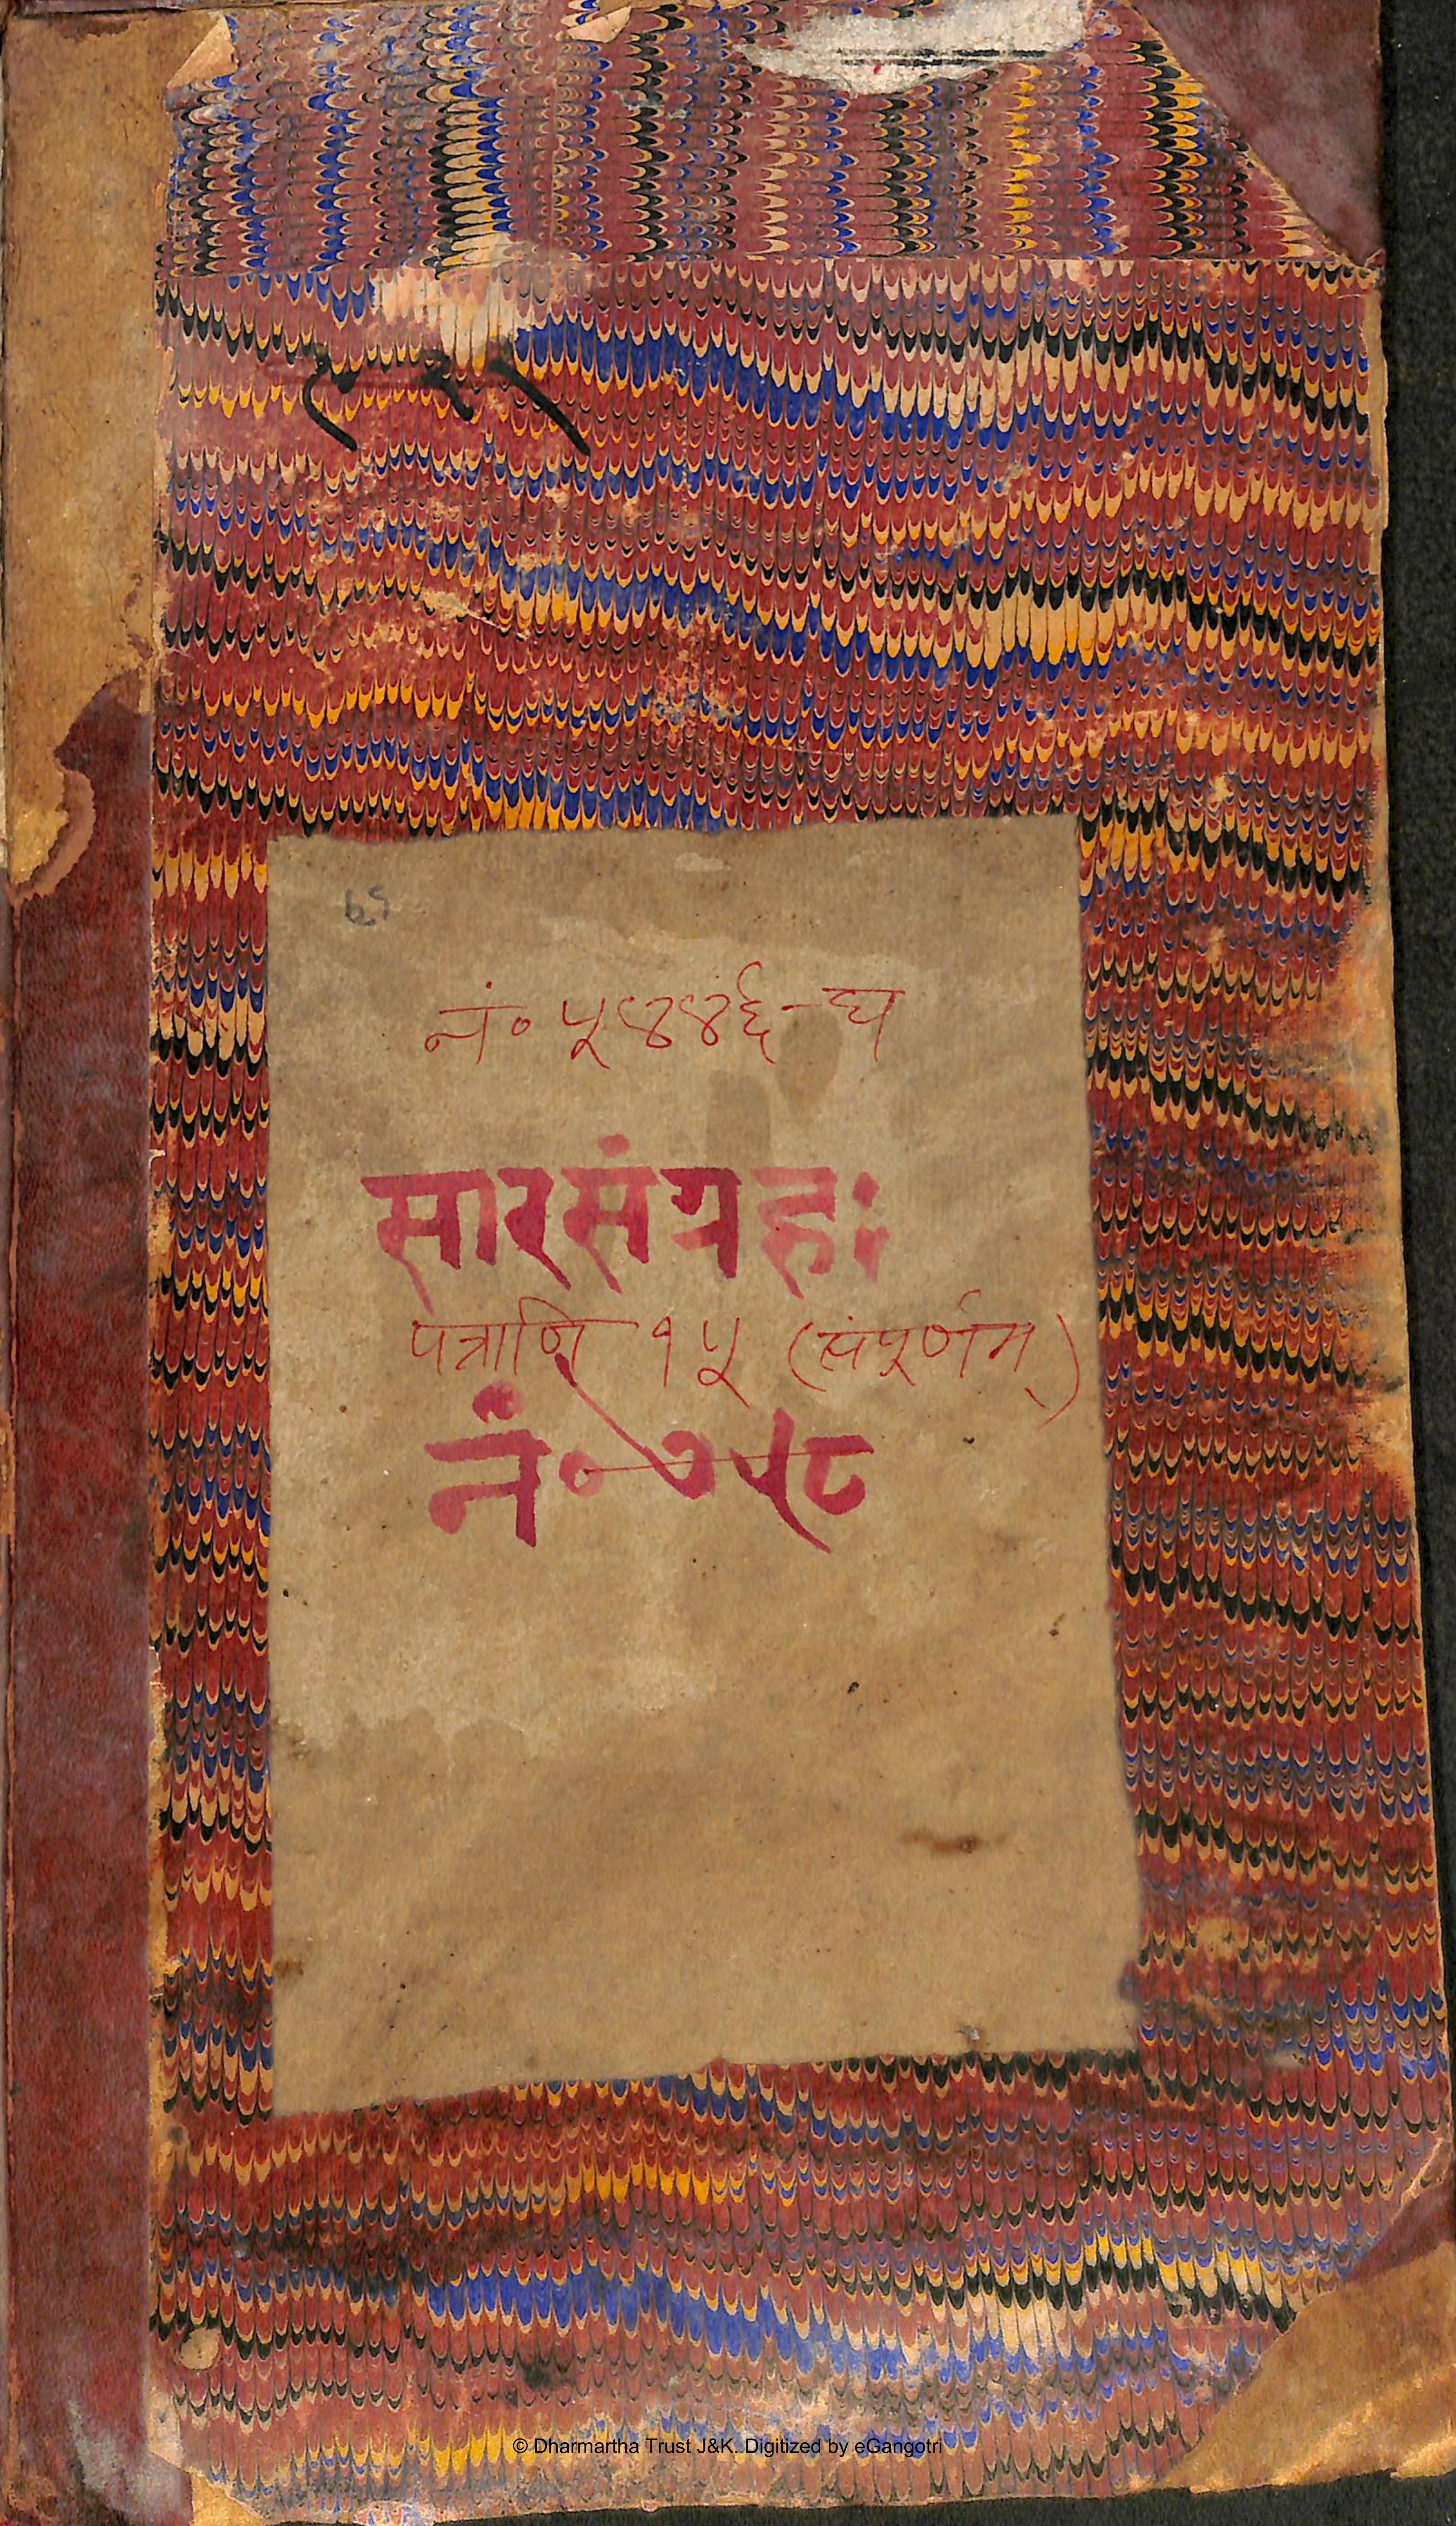 नं० ५४४६-घ
सारसंग्रहः
पत्राणि १५ (संपूर्णम्)
नं० ७५८
© Dharmartha Trust J&K. Digitized by eGangotri